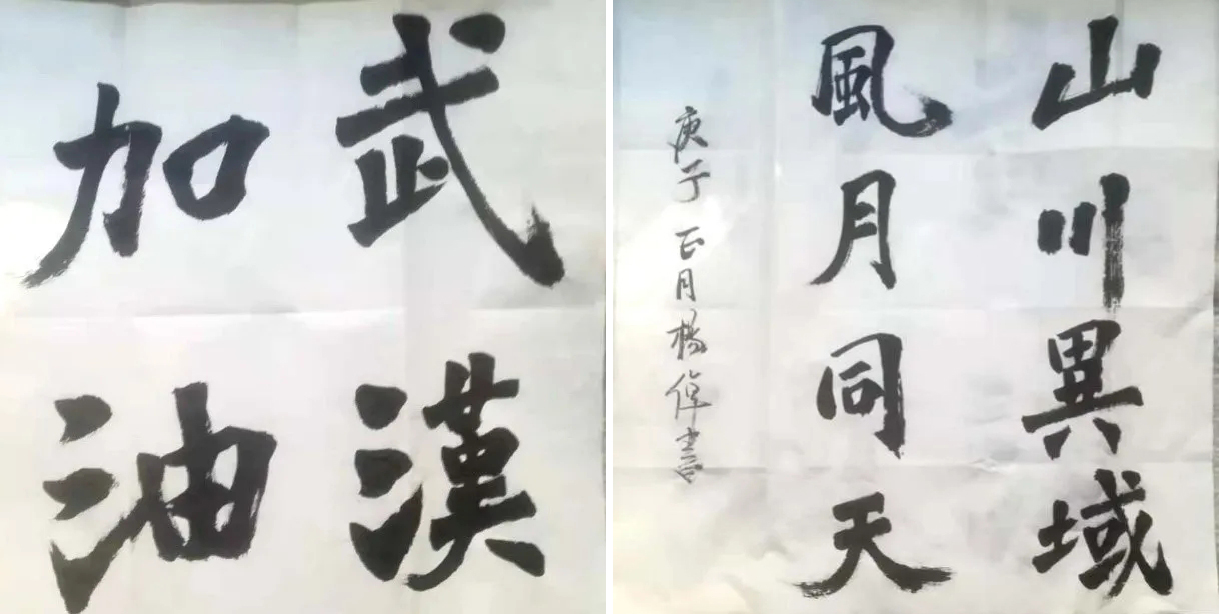 武漢
加油
山川異域
風月同天
庚子正月楊偉書